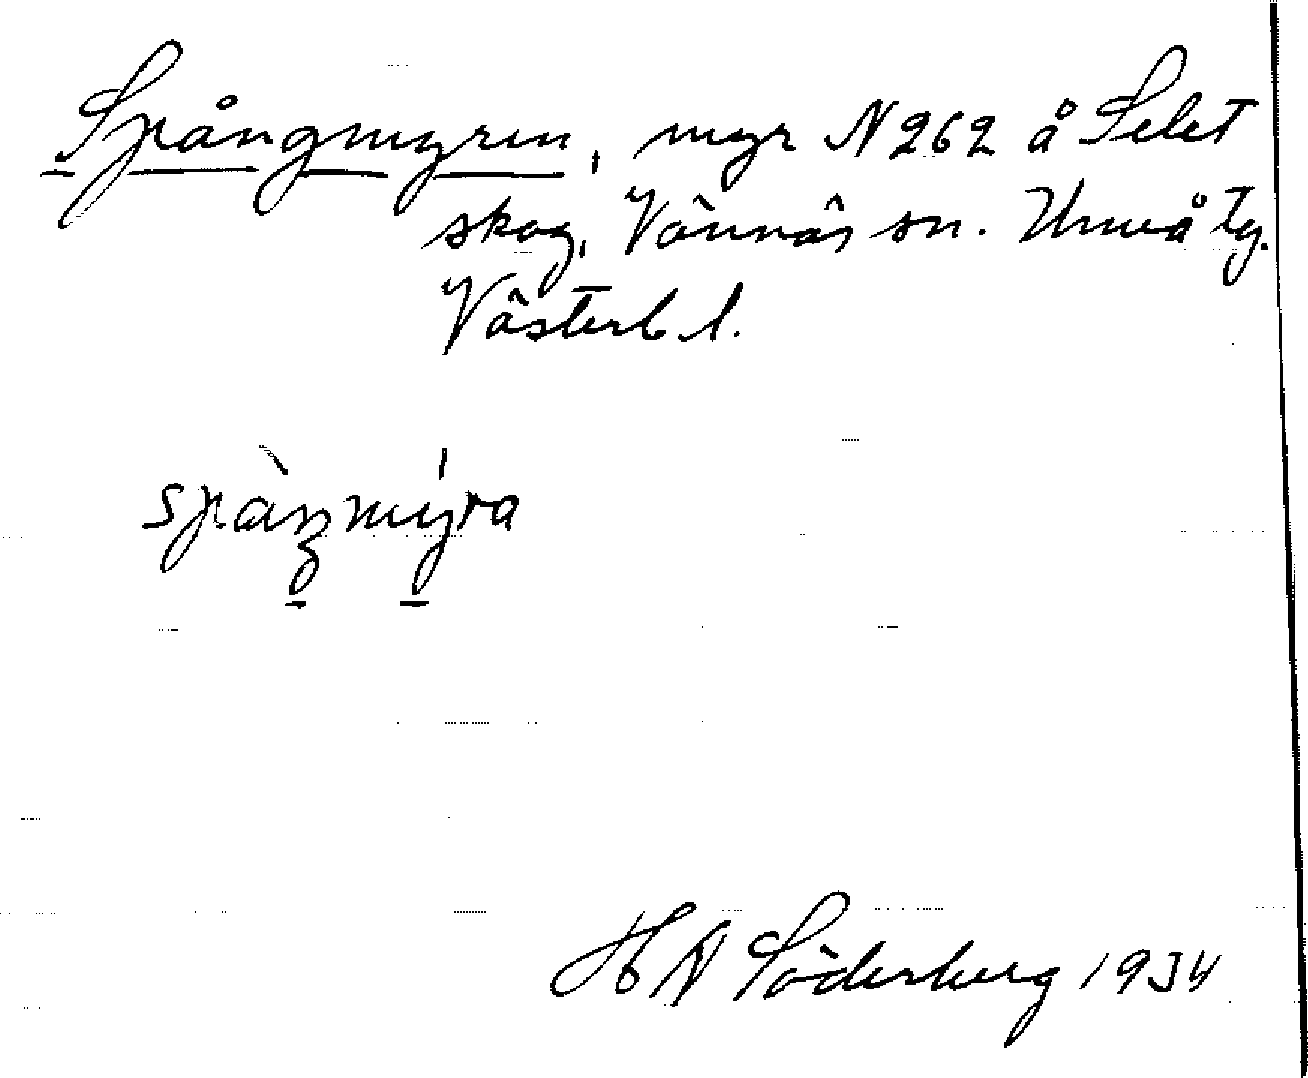 Spångmyren, myr N 262 å Selet
skog, Vännäs sn. Umeå tg.
Västerb l.
spàŋmýra
H N Söderberg 1934